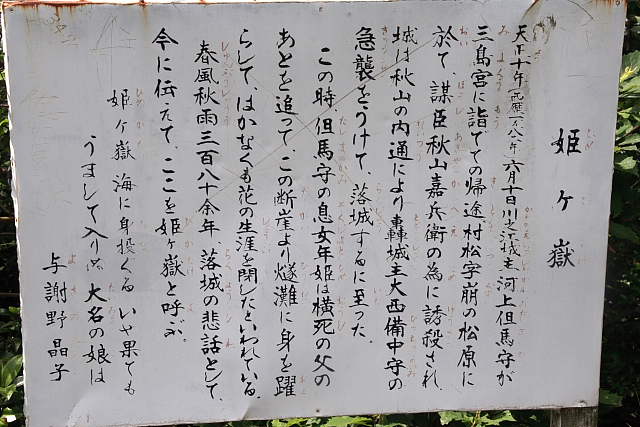 姫ヶ嶽
天正十年西暦一五八二年六月十日川之江城主河上但馬守が
三島宮に詣でての帰途村松字崩の松原に
於て、謀臣秋山嘉兵衛の為に誘殺され、
城は秋山の内通により轟城主大西備中守の
急襲をうけて、落城するに至った。
この時但馬守の息女年姫は横死の父の
あとを追ってこの断崖より燧灘に身を躍
らして、はかなくも花の生涯を閉じたといわれている。
春風秋雨三百八十余年、落城の悲話として、
今に伝えて、ここを姫ヶ嶽と呼ぶ。
姫ヶ嶽海に身投ぐるいや果ても
うまして入りぬ大名の娘は
与謝野晶子